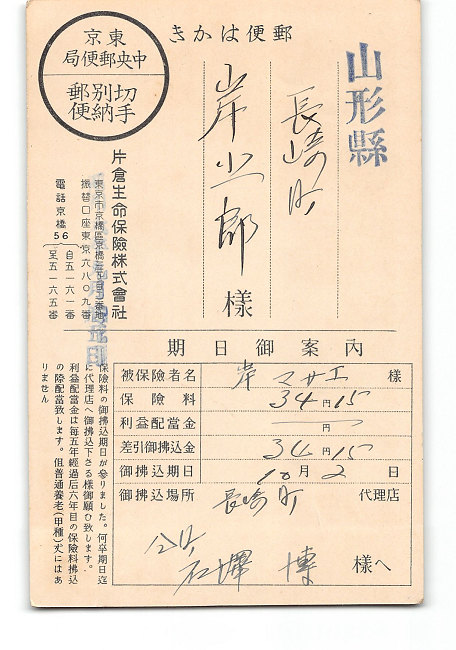 郵便はがき
東京
中央郵便局
切手別納郵便
山形縣
長崎町
岸 郎 様
片倉生命保險株式會社
東京市京橋區京橋三丁目二番地
振替口座東京六八〇九番
電話京橋56
自五一六一番
至五一六五番
期日御案內
被保險者名 岸 マサエ 様
保險料 34円15
利益配當金 — 円
差引御拂込金 34円15
御拂込期日 10月2日
御拂込場所 長崎町 代理店
石澤 博 様へ
保險料の御拂込期日が參りました。何卒期日迄
に代理店へ御拂込下さる樣御願ひ致します。
利益配當金は每五年經過后六年目の保險料拂込
の際配當致します。但普通養老(甲種)丈にはあ
りません